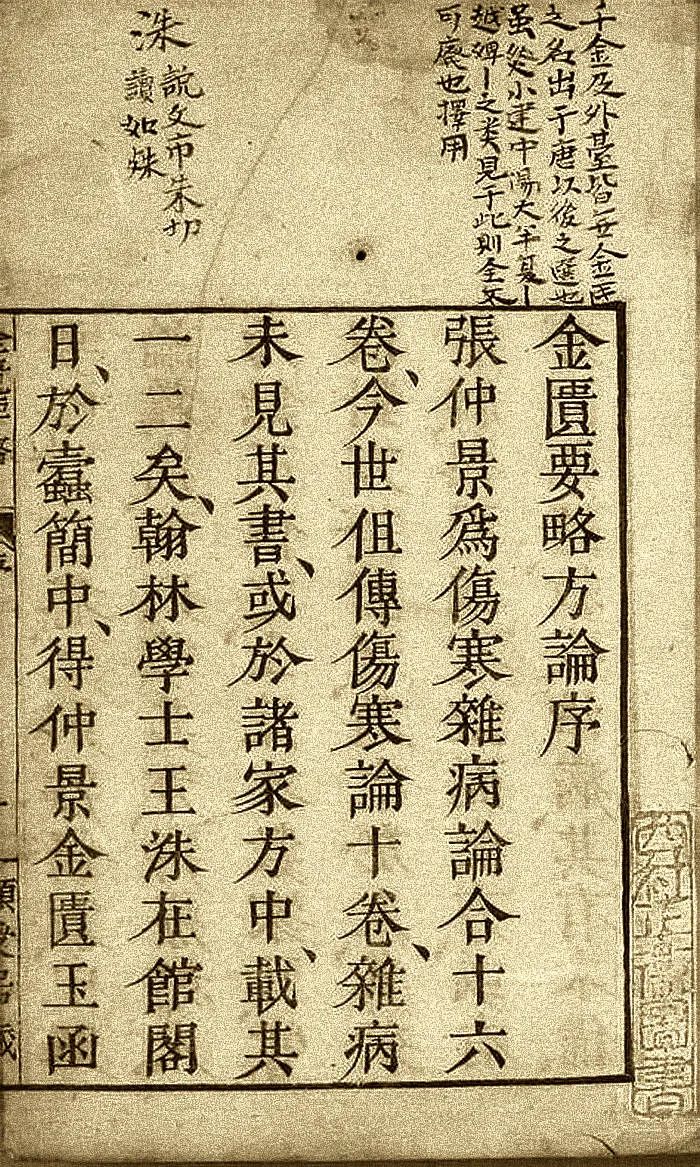 千金及外臺皆
之名出于唐以後之
虽然小建中湯大半夏丨
越婢丨之类見于此則全不
可廢也擇用
洙
說文市朱切
讀如殊
金匱要略方論序
張仲景爲傷寒雜病論合十六
卷、今世但傳傷寒論十卷、雜病
未見其書、或於諸家方中、載其
一二矣、翰林學士王洙在館閣
日、於蠹簡中、得仲景金匱玉函